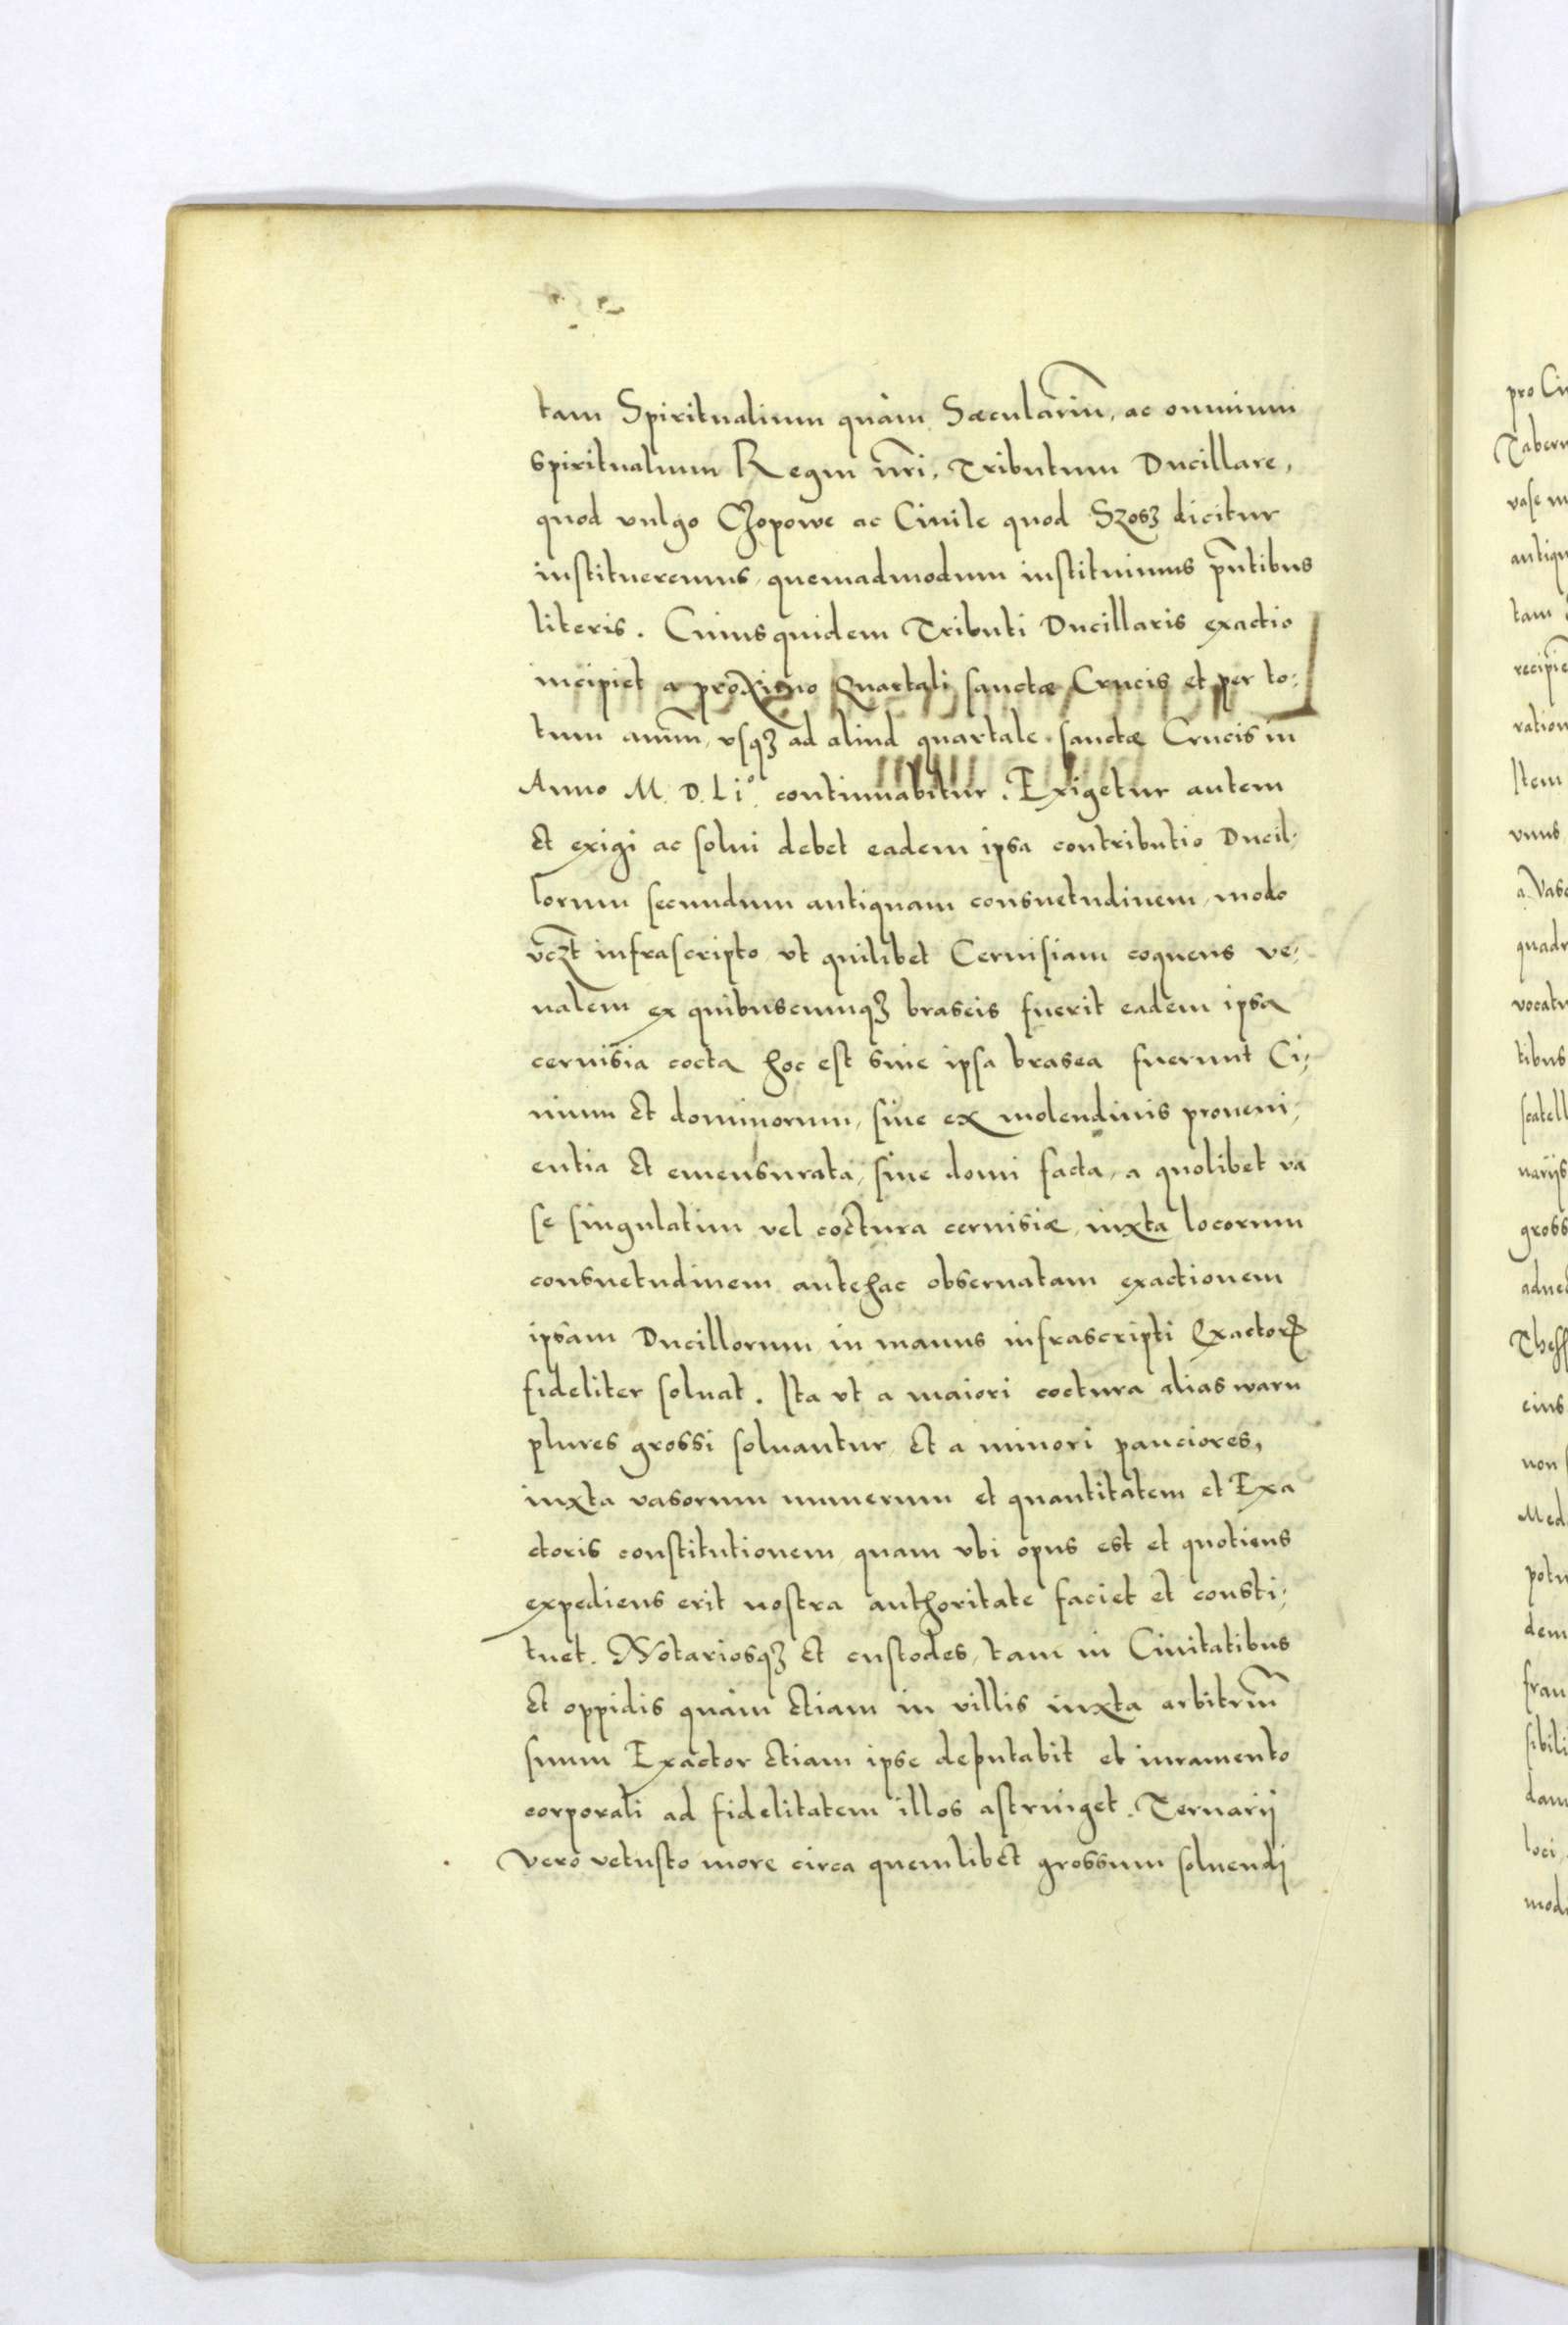 tam Spiritualium quàm Sæculariũ, ac omnium
spiritualium Regni nr̃i, Tributum Ducillare,
quod vulgo Czopowe ac Ciuile quod Szosz dicitur
institueremus, quemadmodum instituimus pñtibus
literis. Cuiusquidem Tributi Ducillaris exactio
incipiet a proximo Quartali sanctæ Crucis et per to:
tum annũ, vsqꝫ ad aliud quartale sanctæ Crucis in
Anno M. D. Liº. continuabitur. Exigetur autem
et exigi ac solui debet eadem ipsa contributio Ducil:
lorum secundum antiquam consuetudinem, modo
vcꝫt infrascripto, vt quilibet Ceruisiam coquens ve:
nalem ex quibuscumqꝫ braseis fuerit eadem ipsa
ceruisia cocta hoc est siue ipsa brasea fuerunt Ci:
uium et dominorum, siue ex molendinis proueni:
entia et emensurata, siue domi facta, a quolibet va
se singulatim vel coctura ceruisiæ, iuxta locorum
consuetudinem antehac obseruatam exactionem
ipsam Ducillorum in manus infrascripti Exactorꝭ
fideliter soluat. Ita vt a maiori coctura alias waru
plures grossi soluantur, et a minori pauciores,
iuxta vasorum numerum et quantitatem et Exa
ctoris constitutionem quam vbi opus est et quotiens
expediens erit nostra authoritate faciet et consti:
tuet. Notariosqꝫ et custodes, tam in Ciuitatibus
et oppidis quàm etiam in villis iuxta arbitriũ
suum Exactor etiam ipse deputabit et iuramento
corporali ad fidelitatem illos astringet. Ternarij
vero vetusto more circa quemlibet grossum soluendi
pro Ci
Tabern
vase
antiqu
tam
recipie
ration
Item
vnus
a vas
quadr
vocatu
tibus
scatell
narijs
gross
adue
Thess
eius
non
Med
potu
dem
frau
sibili
dam
loci
mod